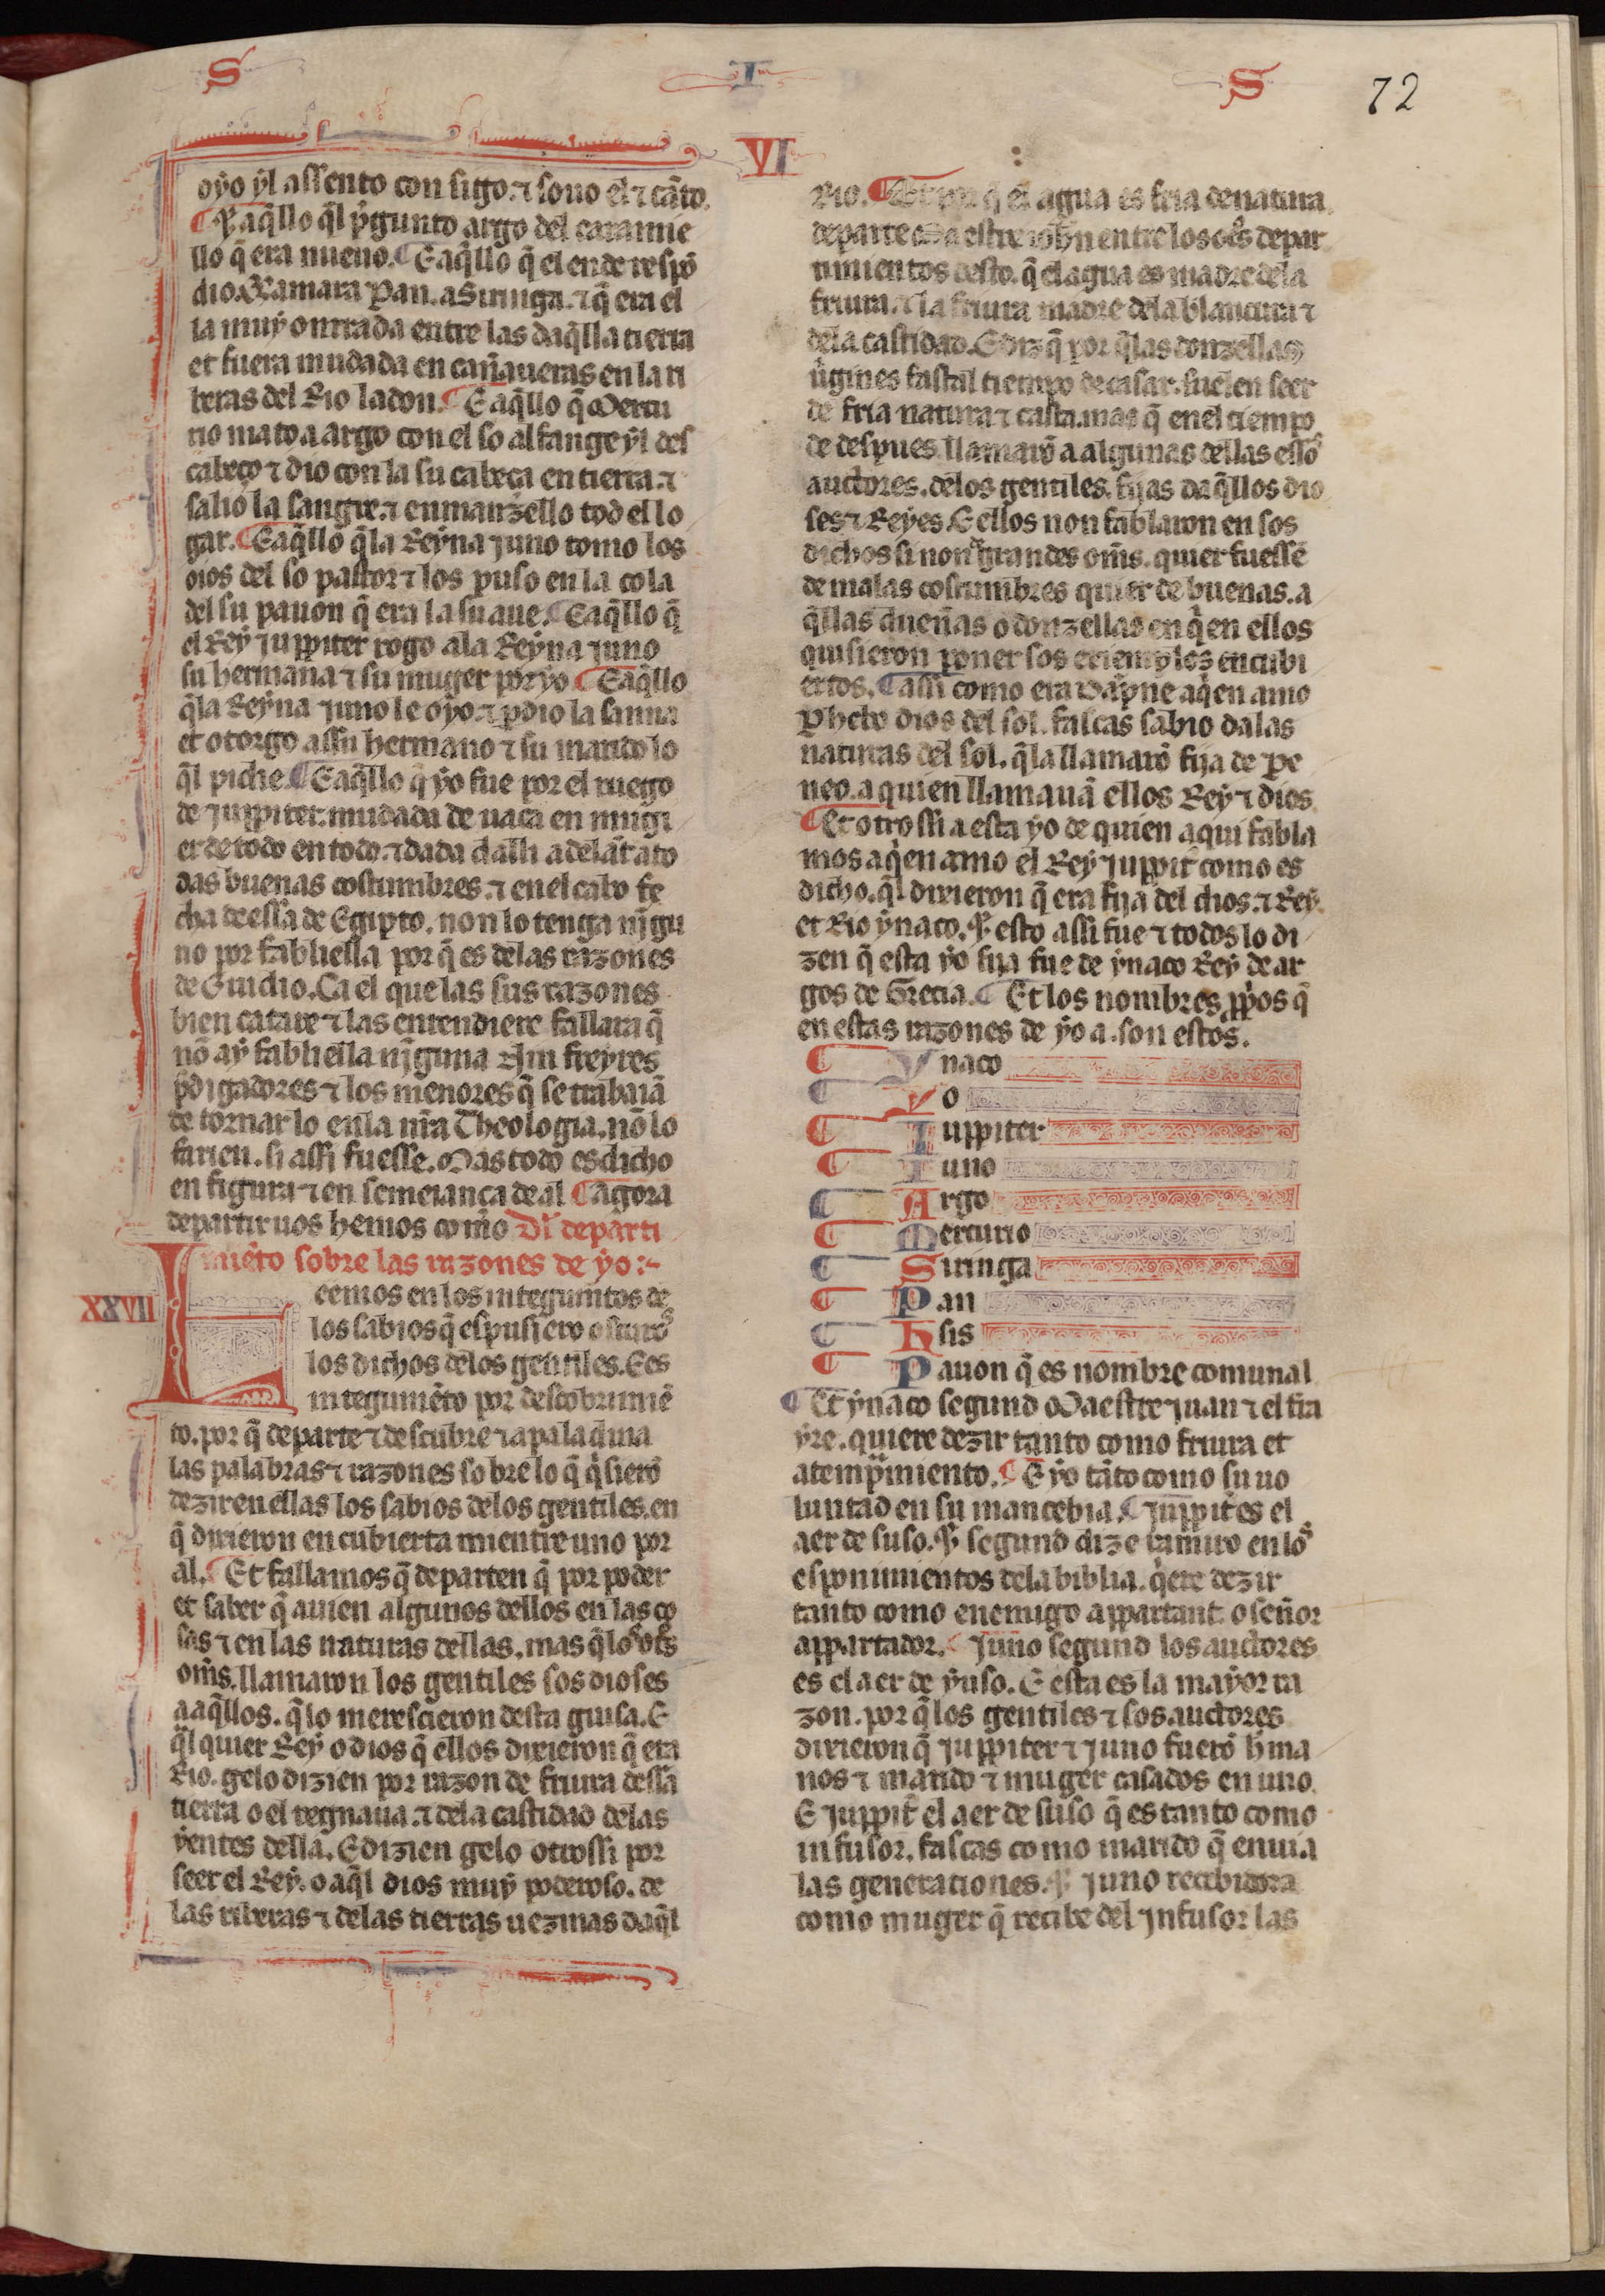 S I S
72
VI
oyo ẏl assento con sigo. ⁊ sono el ⁊ cãto.
¶ P̃ aq̃llo q̃l p̃gunto argo del caramie
llo q̃ era nueuo. ¶ E aq̃llo q̃ el ende respõ
dio. Q̃ amara Pan. a Siringa. ⁊ q̃ era el
la muẏ onrrada entre las daq̃lla tierra
et fuera mudada en cannaueras en la ri
beras del Rio ladon. ¶ E aq̃llo q̃ Mercu
rio mato a argo con el so alfange ẏl des
cabeço ⁊ dio con la su cabeça en tierra. ⁊
salio la sangre. ⁊ enmanzello tod el lo
gar. ¶ E aq̃llo q̃ la Reẏna juno tomo los
oios del so pastor ⁊ los puso en la cola
del su pauon q̃ era la su aue. ¶ E aq̃llo q̃
el Reẏ juppiter rogo ala Reẏna juno
su hermana ⁊ su muger por ẏo ¶ E aq̃llo
q̃la Reẏna juno le oẏo. ⁊ p̱dio la sanna
et otorgo assu hermano ⁊ su marido lo
q̃l pidie. ¶ E aq̃llo q̃ ẏo fue por el ruego
de juppiter. mudada de uaca en mugi
er de todo en todo. ⁊ dada dalli adelãt a to
das buenas costumbres. ⁊ en el cabo fe
cha deessa de Egipto. non lo tenga nĩgu
no por fabliella por q̃ es delas razones
de Ouidio. Ca el que las sus razones
bien catare ⁊ las entendiere fallara q̃
nõ aẏ fabliella nĩguna nin freẏres
p̃digadores ⁊ los menores q̃ se trabaiã
de tornar lo en la nr̃a Theologia. nõ lo
farien. si assi fuesse. Mas todo es dicho
en figura ⁊ en semeiança de al ¶ agora
departir uos hemos como Dl̃ departi
miẽto sobre las razones de ẏo:~
XXVII
Leemos en los integumẽtos de
los sabios q̃ espusierõ oscuros
los dichos delos gentiles. E es
integumẽto por descobrimiẽ
to. por q̃ departe ⁊ descubre ⁊ apaladina
las palabras ⁊ razones sobre lo q̃ q̃sierõ
dezir en ellas los sabios delos gentiles. en
q̃ dixieron encubierta mientre uno por
al. ¶ Et fallamos q̃ departen q̃ por poder
et saber q̃ auien algunos dellos en las co
sas ⁊ en las naturas dellas. mas q̃ los ot̃s
om̃s. llamaron los gentiles sos dioses
a aq̃llos. q̃ lo merescieron desta guisa. E
q̃l quier Reẏ o dios q̃ ellos dixieron q̃ era
Rio. gelo dizien por razon de friura dessa
tierra o el regnaua. ⁊ dela castidad delas
ẏentes della. E dizien gelo otrossi por
seer el Reẏ. o aq̃l dios muẏ poderoso. de
las riberas ⁊ delas tierras uezinas daq̃l
Rio. ¶ q̃ el agua es fria de natura.
departe Maestre ioh̃n entre los ot̃s depar
timientos desto. q̃ el agua es madre dela
friura. ⁊ la friura madre dela blancura ⁊
dela castidad. E diz q̃ por q̃ las donzellas
ũgines fastal tiempo de casar. suelen seer
de fria natura ⁊ casta. mas q̃ en el tiempo
de despues. llamarõ a algunas dellas essos
auctores. delos gentiles. fijas daq̃llos dio
ses ⁊ Reẏes. E ellos non fablaron en sos
dichos si non de grandes om̃s. quier fuessẽ
de malas costumbres quier de buenas. a
q̃llas duennas o donzellas en q̃en ellos
quisieron poner sos exiemplos encubi
ertos. ¶ assi como era Daphne a q̃en amo
Phebo dios del sol. fascas sabio dalas
naturas del sol. q̃la llamarõ fija de Pe
neo. a quien llamauã ellos Reẏ ⁊ dios.
¶ Et otrossi a esta ẏo de quien aqui fabla
mos a q̃en amo el Reẏ juppit̃ como es
dicho. q̃l dixieron q̃ era fija del dios. ⁊ Reẏ.
et Rio ẏnaco. ¶ esto assi fue ⁊ todos lo di
zen q̃ esta ẏo fija fue de ẏnaco Reẏ de ar
gos de Grecia. ¶ Et los nombres p̱p̃os q̃
en estas razones de ẏo a. son estos.
¶ Ynaco
¶ Yo
¶ Iuppiter
¶ Iuno
¶ Argo
¶ Mercurio
¶ Siringa
¶ Pan
¶ Ysis
¶ Pauon q̃ es nombre comunal
¶ Et ẏnaco segund Maestre juan ⁊ el fra
ẏre. quiere dezir tanto como friura et
atemp̱miento. ¶ E ẏo tãto como su uo
luntad en su mancebia. ¶ juppit̃ es el
aer de suso. ¶ segund dize ramiro en los
esponimientos dela biblia. q̃ere dezir
tanto como enemigo appartant. o sennor
appartador. ¶ juno segund los auctores
es el aer de ẏuso. E esta es la maẏor ra
zon. por q̃ los gentiles ⁊ sos auctores
dixieron q̃ juppiter ⁊ juno fuerõ h̃ma
nos ⁊ marido ⁊ muger casados en uno.
E juppit̃ el aer de suso q̃ es tanto como
infusor. fascas como marido q̃ enuia
las generationes. ¶ juno recebidora
como muger q̃ recibe del jnfusor las